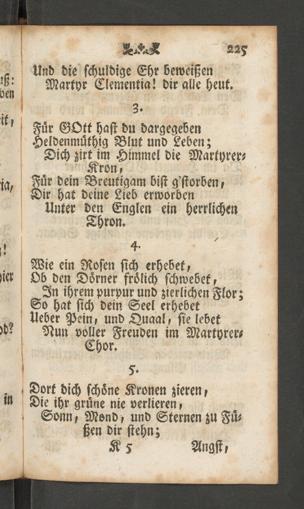 225
Und die schuldige Ehr beweißen
Martyr Clementia! dir alle heut.
3.
Für GOtt hast du dargegeben
Heldenmüthig Blut und Leben;
Dich zirt im Himmel die Martyrer-
Kron,
Für dein Breutigam bist g'storben,
Dir hat deine Lieb erworben
Unter den Englen ein herrlichen
Thron.
4.
Wie ein Rosen sich erhebet,
Ob den Dörner frölich schwebet,
In ihrem purpur und zierlichen Flor;
So hat sich dein Seel erhebet
Ueber Pein, und Quaal, sie lebet
Nun voller Freuden im Martyrer-
Chor.
5.
Dort dich schöne Kronen zieren,
Die ihr grüne nie verlieren,
Sonn, Mond, und Sternen zu Fü-
ßen dir stehn;
K 5 Angst,